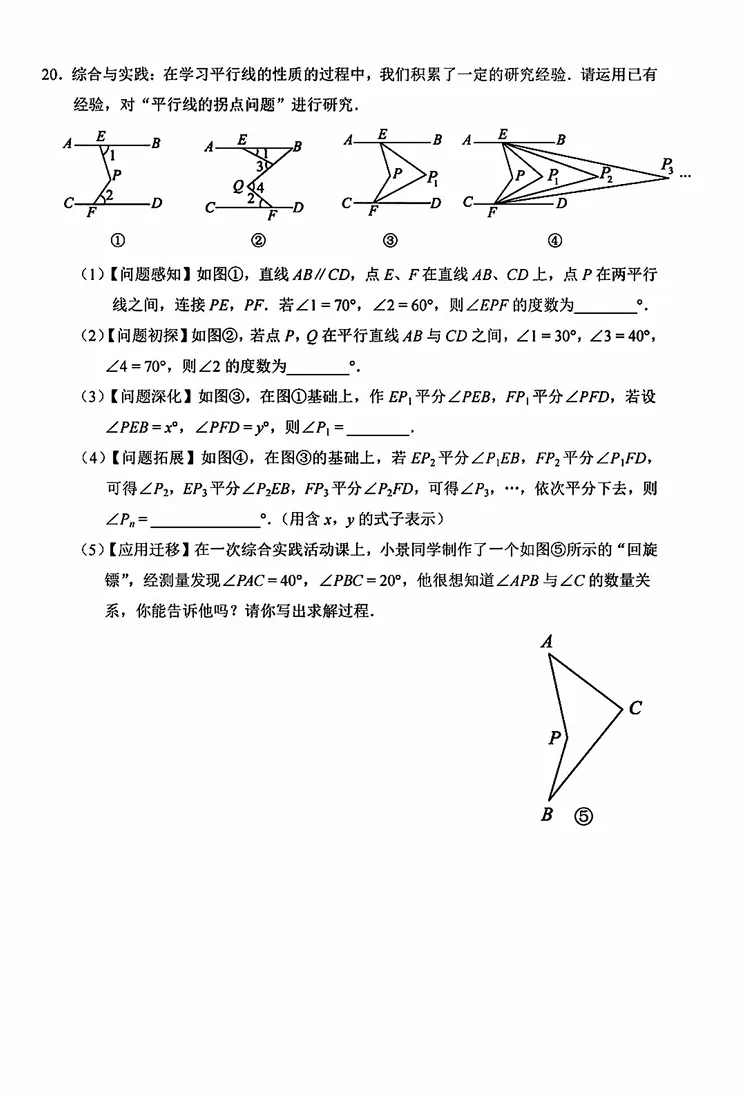 20．综合与实践：在学习平行线的性质的过程中，我们积累了一定的研究经验．请运用已有
经验，对“平行线的拐点问题”进行研究．
A E B 1 P C 2 F D
A E 1 B 3 Q 4 2 C F D
A E B P P₁ C F D
A E B P P₁ P₂ P₃ … C F D
① ② ③ ④
（1）【问题感知】如图①，直线 AB∥CD，点 E、F 在直线 AB、CD 上，点 P 在两平行
线之间，连接 PE，PF．若∠1＝70°，∠2＝60°，则∠EPF 的度数为________°．
（2）【问题初探】如图②，若点 P，Q 在平行直线 AB 与 CD 之间，∠1＝30°，∠3＝40°，
∠4＝70°，则∠2 的度数为________°．
（3）【问题深化】如图③，在图①基础上，作 EP₁平分∠PEB，FP₁平分∠PFD，若设
∠PEB＝x°，∠PFD＝y°，则∠P₁＝________．
（4）【问题拓展】如图④，在图③的基础上，若 EP₂平分∠P₁EB，FP₂平分∠P₁FD，
可得∠P₂，EP₃平分∠P₂EB，FP₃平分∠P₂FD，可得∠P₃，…，依次平分下去，则
∠Pₙ＝______________°．（用含 x，y 的式子表示）
（5）【应用迁移】在一次综合实践活动课上，小景同学制作了一个如图⑤所示的“回旋
镖”，经测量发现∠PAC＝40°，∠PBC＝20°，他很想知道∠APB 与∠C 的数量关
系，你能告诉他吗？请你写出求解过程．
A
C
P
B ⑤